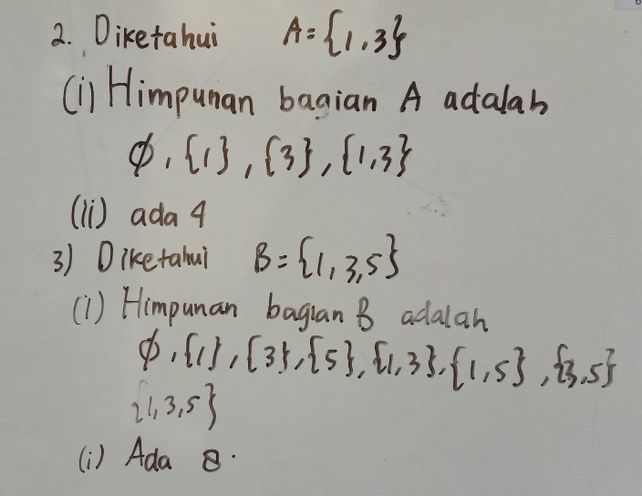 2. Diketahui A = {1,3}
(i) Himpunan bagian A adalah
∅, {1}, {3}, {1,3}
(ii) ada 4
3) Diketahui B = {1,3,5}
(i) Himpunan bagian B adalah
∅, {1}, {3}, {5}, {1,3}, {1,5}, {3,5}
{1,3,5}
(i) Ada 8.